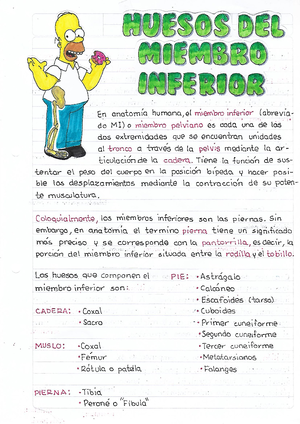 HUESOS DEL
MIEMBRO
INFERIOR
En anatomía humana, el miembro inferior (abrevia-
do MI) o miembro pelviano es cada una de las
dos extremidades que se encuentran unidas
al tronco a través de la pelvis mediante la ar-
ticulación de la cadera. Tiene la función de sus-
tentar el peso del cuerpo en la posición bípeda y hacer posi-
ble los desplazamientos mediante la contracción de su poten-
te musculatura.
Coloquialmente, los miembros inferiores son las piernas. Sin
embargo, en anatomía el termino pierna tiene un significado
más preciso y se corresponde con la pantorrilla, es decir, la
porción del miembro inferior situada entre la rodilla y el tobillo.
Los huesos que componen el
miembro inferior son:
CADERA: • Coxal
• Sacro
MUSLO: • Coxal
• Fémur
• Rótula o patella
PIERNA: • Tibia
• Peroné o "Fibula"
PIE: • Astrágalo
• Calcáneo
• Escafoides (tarso)
• Cuboides
• Primer cuneiforme
• Segundo cuneiforme
• Tercer cuneiforme
• Metatarsianos
• Falanges